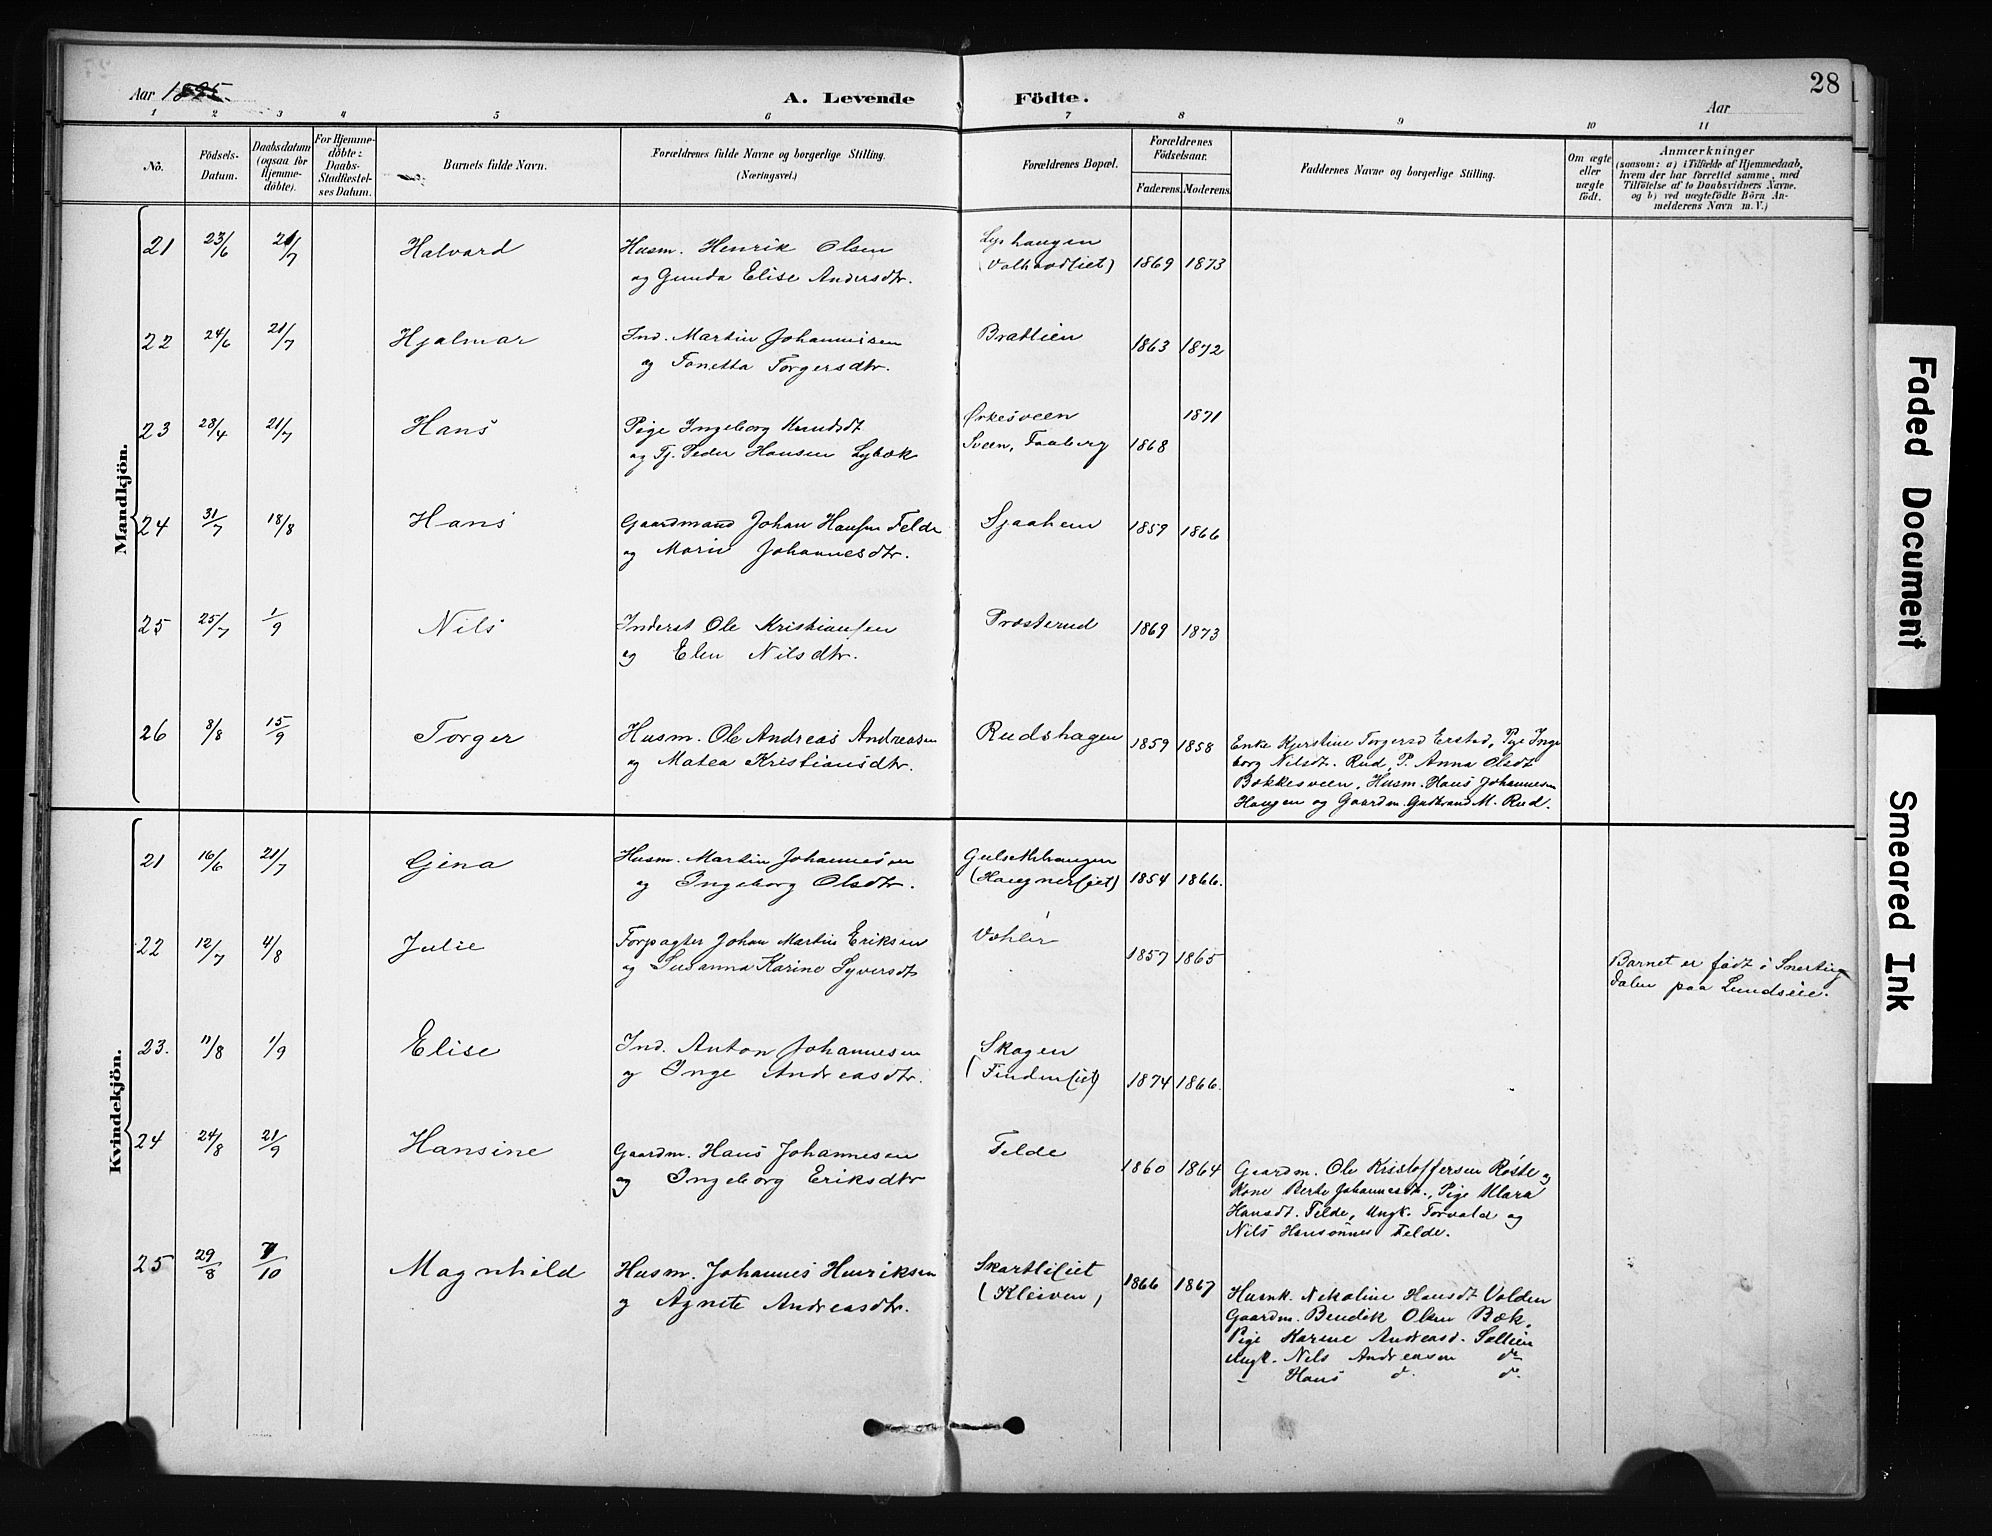 28
Aar 1895.
A. Levende Födte.
Aar
1 2 3 4 5 6 7 8 9 10 11
No.
Födsels-Datum.
Daabsdatum (ogsaa for Hjemme-döbte).
For Hjemme-döbte: Daabs-Stadfæstel-ses Datum.
Barnets fulde Navn.
Forældrenes fulde Navne og borgerlige Stilling.
(Næringsvei.)
Forældrenes Bopæl.
Forældrenes Födselsaar.
Faderens. Moderens.
Faddernes Navne og borgerlige Stilling.
Om ægte eller uægte födt.
Anmærkninger
(saasom: a) i Tilfælde af Hjemmedaab,
hvem der har forrettet samme, med
Tilföielse af to Daabsvidners Navne.
og b) ved uægtefödte Börn An-
melderens Navn m. V.)
Mandkjön.
21 23/6 21/7 Halvard Husm. Henrik Olsen
og Gunda Elise Andersdtr. 1869 1873
22 24/6 21/7 Hjalmar Ind. Martin Johannisen Bratlien
og Tonetta Torgersdtr. 1863 1872
23 28/4 21/7 Hans Pige Ingeborg Knudsdt Ørkesveen 1871
og Tj. Peder Hansen Lybæk Sveen, Faaberg 1868
24 31/7 18/8 Hans Gaardmand Johan Hansen Felde Sjaahem 1859 1866
og Marie Johannesdtr.
25 25/7 1/9 Nils Inderst Ole Kristiansen Præsterud 1869 1873
og Elen Nilsdtr.
26 8/8 15/9 Torger Husm. Ole Andreas Andreasen Rudshagen 1859 1858
og Matea Kristiansdtr.
Enke Kjerstine Torgersd Erstad, Pige Inge
borg Nilsdt. Rud, P. Anna Olsdt
Bækkesveen, Husm. Hans Johannesen
Haugen og Gaardm. Gudbrand M. Rud.
Kvindekjön.
21 16/6 21/7 Gina Husm. Martin Johannesen
og Ingeborg Olsdtr. 1854 1866.
22 12/7 4/8 Julie Forpagter Johan Martin Eriksen
og Susanna Karine Syversdt 1857 1865
Barnet er født i Snerting
dalen paa Lundseie.
23. 11/8 1/9 Elise Ind. Anton Johannesen Skogen
og Inge Andreasdtr. 1874 1866.
24 24/8 21/9 Hansine Gaardm. Hans Johannesen Felde
og Ingeborg Eriksdtr 1860 1864
Gaardm. Ole Kristoffersen Røste og
Kone Berte Johannesdt., Pige Klara
Hansdt. Felde, Ungk. Torvald og
Nils Hansønner Felde.
25 29/8 /10 Magnhild Husm. Johannes Henriksen
og Agnete Andreasdtr. (Kleven) 1866 1867
Husmk. Nekoline Hansdt Volden
Gaardm. Bendik Olsen Bæk.
Pige Karine Andreasd. Sollien
Ungk. Nils Andreasen do
- Hans do do
Faded Document
Smeared Ink